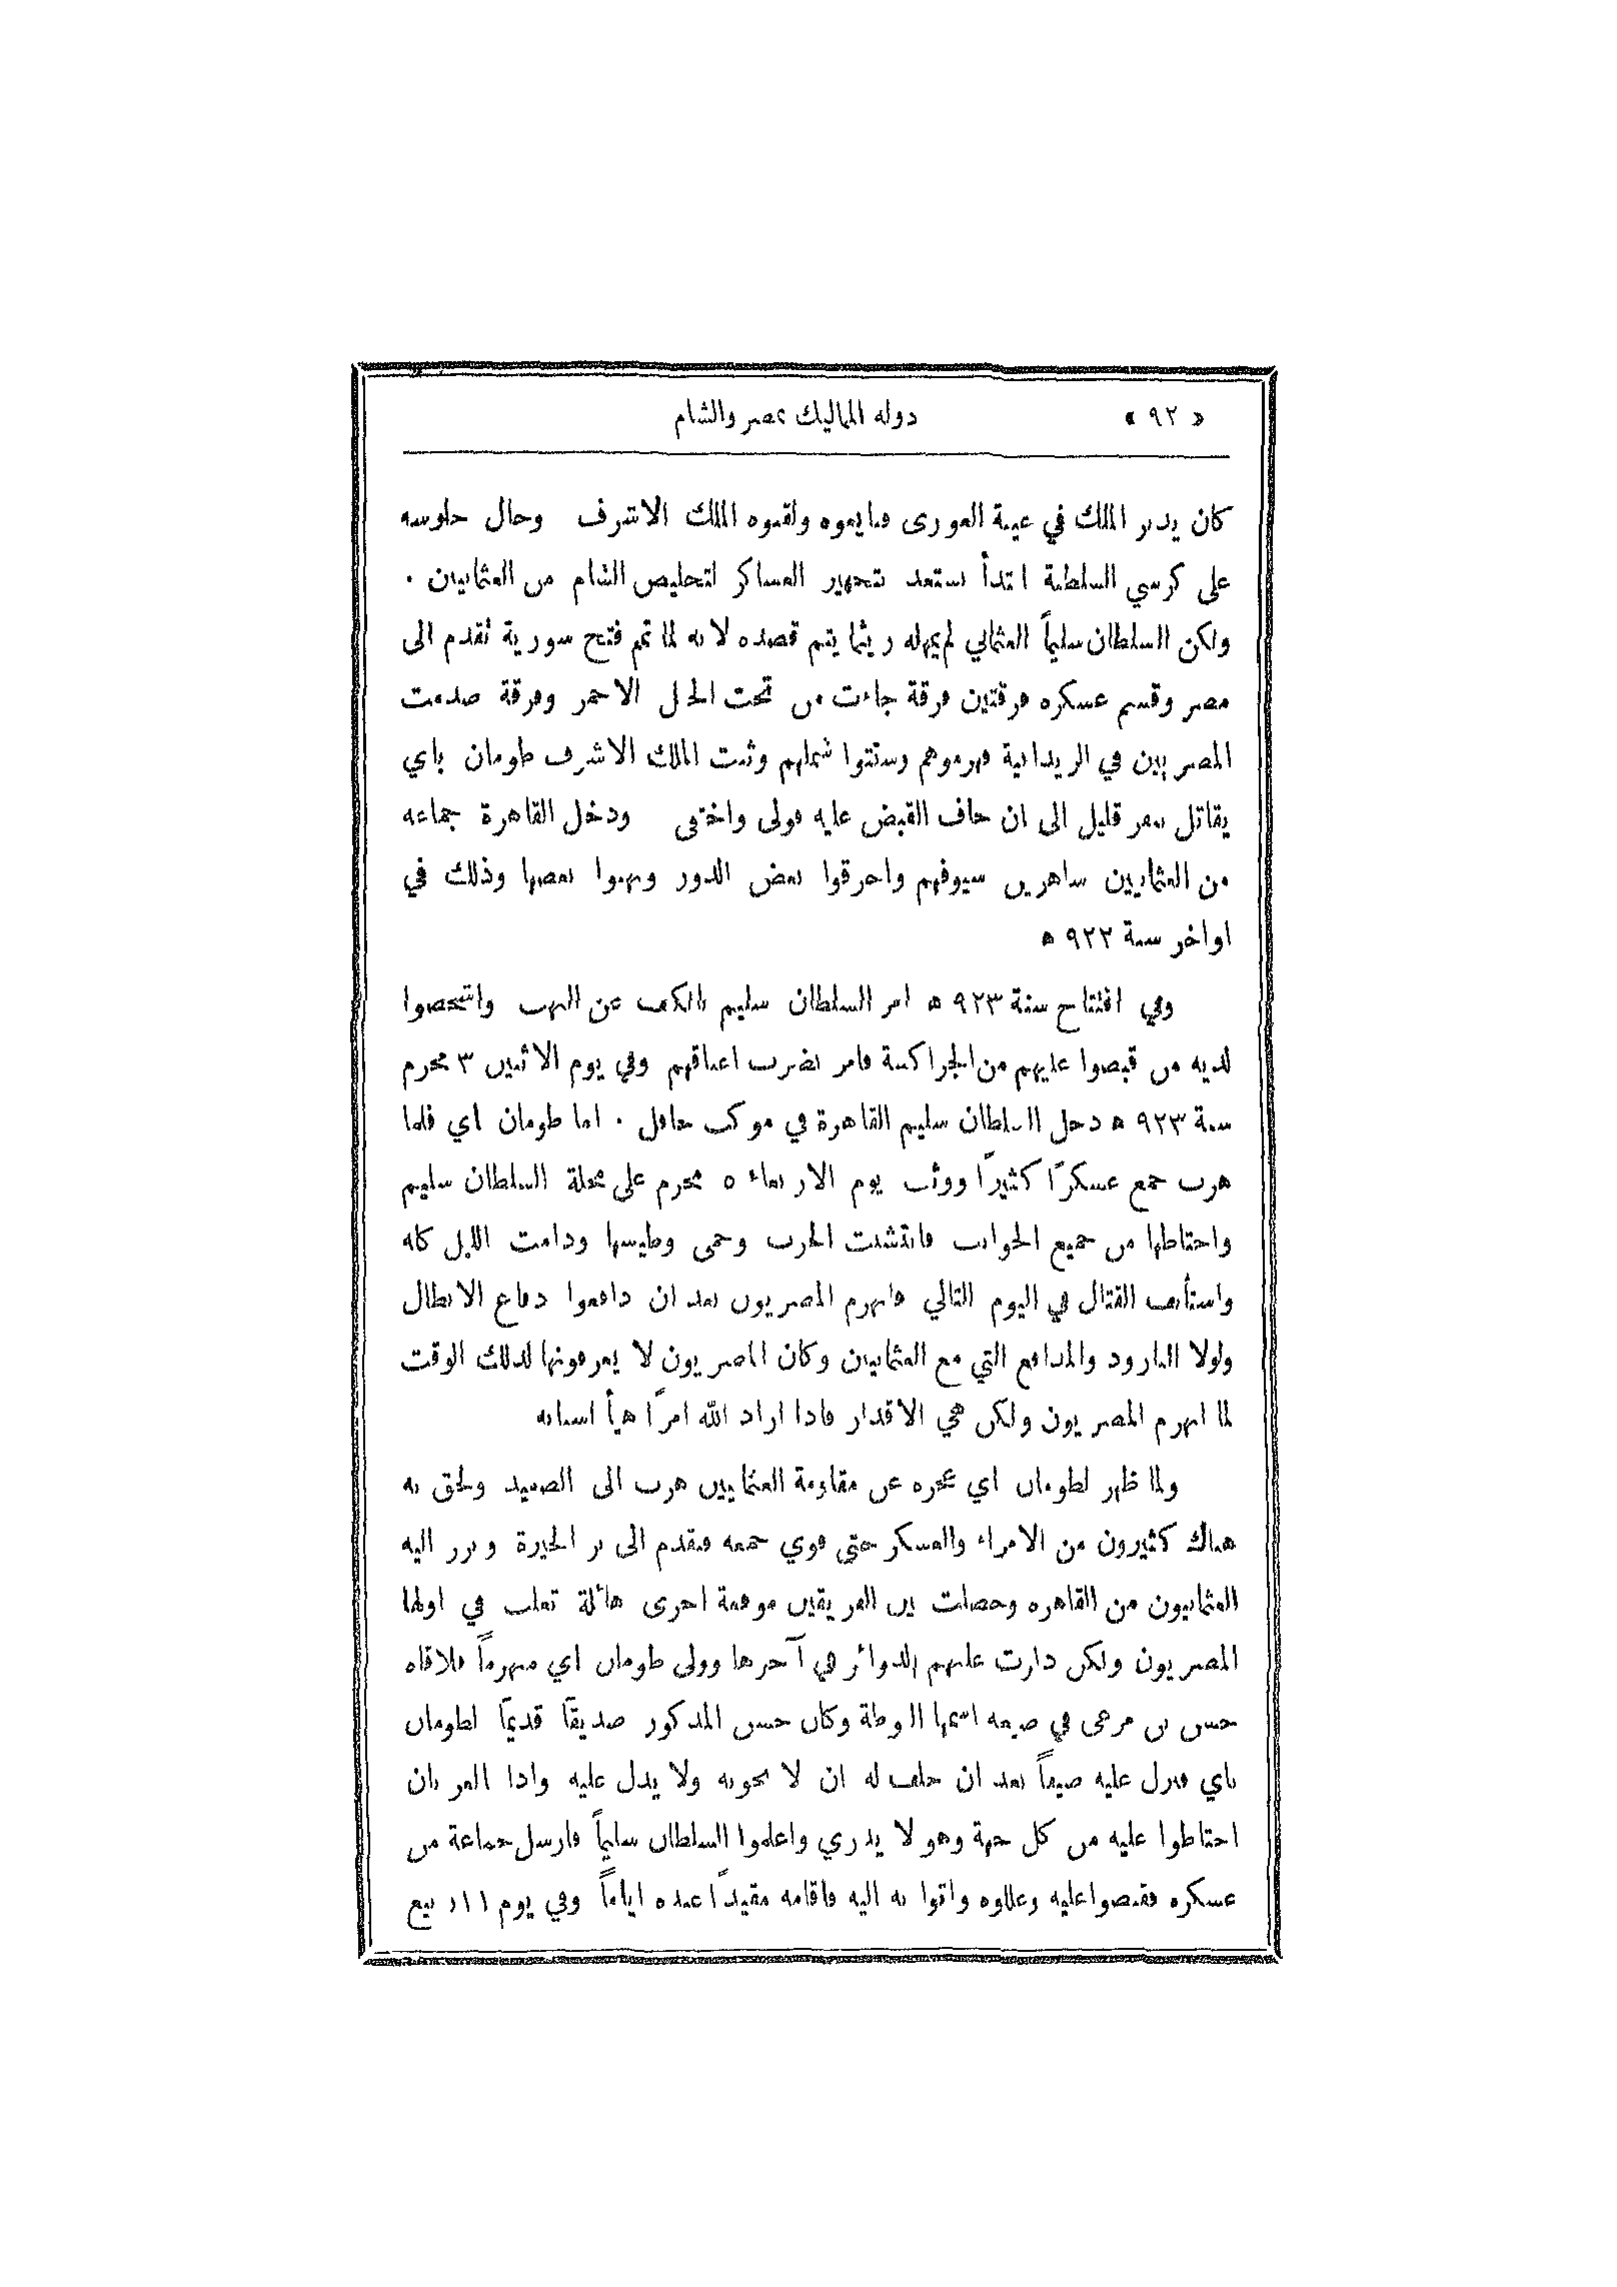 « ٩٢ » دولة المماليك بمصر والشام
كان يدبر الملك في غيبة الغوري فبايعوه ولقبوه الملك الاشرف وحال جلوسه
على كرسي السلطنة ابتدأ يستعد بتجهيز العساكر لتخليص الشام من العثمانيين .
ولكن السلطان سليماً العثماني لم يمهله ريثما يتم قصده لانه لما تم فتح سورية تقدم الى
مصر وقسم عسكره فرقتين فرقة جاءت من تحت الجبل الاحمر وفرقة صدمت
المصريين في الريدانية فهزموهم وشتتوا شملهم وثبت الملك الاشرف طومان باي
يقاتل بنفر قليل الى ان خاف القبض عليه فولى واختفى ودخل القاهرة جماعة
من العثمانيين شاهرين سيوفهم واحرقوا بعض الدور ونهبوا بعضها وذلك في
اواخر سنة ٩٢٢ ه
وفي افتتاح سنة ٩٢٣ ه امر السلطان سليم بالكف عن النهب واشخصوا
لديه من قبضوا عليهم من الجراكسة فامر بضرب اعناقهم وفي يوم الاثنين ٣ محرم
سنة ٩٢٣ ه دخل السلطان سليم القاهرة في موكب حافل . اما طومان باي فلما
هرب جمع عسكرًا كثيرًا ووثب يوم الاربعاء ٥ محرم على محلة السلطان سليم
واحتاطها من جميع الجوانب فانتشبت الحرب وحمى وطيسها ودامت الليل كله
واستأنف القتال في اليوم التالي فانهزم المصريون بعد ان دافعوا دفاع الابطال
ولولا البارود والمدافع التي مع العثمانيين وكان المصريون لا يعرفونها لذلك الوقت
لما انهزم المصريون ولكن هي الاقدار فاذا اراد الله امرًا هيأ اسبابه
ولما ظهر لطومان باي عجزه عن مقاومة العثمانيين هرب الى الصعيد ولحق به
هناك كثيرون من الامراء والعسكر حتى قوي جمعه فتقدم الى بر الجيزة وبرز اليه
العثمانيون من القاهرة وحصلت بين الفريقين موقعة اخرى هائلة تغلب في اولها
المصريون ولكن دارت عليهم الدوائر في آخرها وولى طومان باي منهزماً فلاقاه
حسن بن مرعى في ضيعة اسمها البوطة وكان حسن المذكور صديقًا قديمًا لطومان
باي فنزل عليه ضيفاً بعد ان حلف له ان لا يخونه ولا يدل عليه واذا العربان
احتاطوا عليه من كل جهة وهو لا يدري واعلموا السلطان سليماً فارسل جماعة من
عسكره فقبضوا عليه وغللوه واتوا به اليه فاقامه مقيدًا عنده اياماً وفي يوم ١١ ربيع